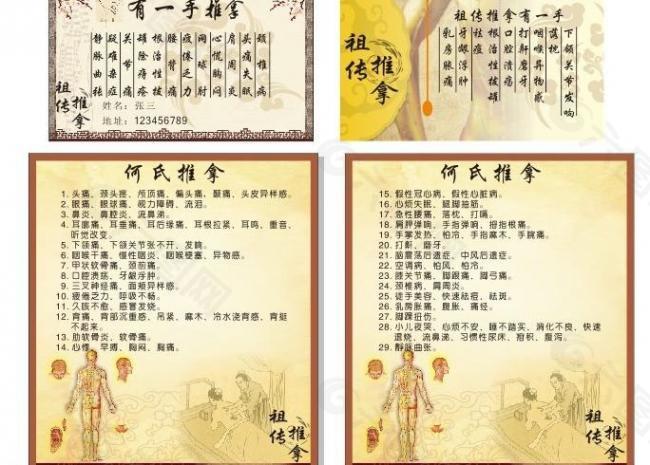 有一手推拿
颈椎病
头痛失眠
肩周炎
心慌胸闷
网球肘
疲倦乏力
腰背痛
根治性痔疮
关节痛
疑难杂症
静脉曲张
祖传推拿
姓名:张三
地址:123456789
祖传推拿有一手
下颌关节发响
落枕
咽喉异物感
打鼾磨牙
口腔溃疡
根治性拔罐
祛痘
牙龈浮肿
乳房胀痛
祖传推拿
何氏推拿
1. 头痛、颈头疼、颅顶痛、偏头痛、颠痛、头皮异样感。
2. 眼痛、眼球痛、视力障碍、流泪。
3. 鼻炎、鼻腔炎、流鼻涕。
4. 耳廓痛、耳垂痛、耳后缘痛、耳根拉紧、耳鸣、重音、
听觉改变。
5. 下颌痛、下颌关节张不开、发响。
6. 咽喉干痛、慢性咽炎、咽喉梗塞、异物感。
7. 甲状软骨痛、颈前痛。
8. 口腔溃疡、牙龈浮肿。
9. 三叉神经痛、面颊异样感。
10. 疲倦乏力、呼吸不畅。
11. 久咳不愈、感冒发烧。
12. 背痛、背部沉重感、吊紧、麻木、冷水浇背感、背挺
不起来。
13. 肋软骨炎、软骨痛。
14. 心慌、早搏、胸闷、胸痛。
祖传推拿
何氏推拿
15. 假性冠心病、假性心脏病。
16. 心烦失眠、腿脚抽筋。
17. 急性腰痛、落枕、打嗝。
18. 肩胛弹响、手指弹响、拇指根痛。
19. 手掌发热、怕冷、手指麻木、手腕痛。
20. 打鼾、磨牙。
21. 脑震荡后遗症、中风后遗症。
22. 空调病、怕风、怕冷。
23. 膝关节痛、脚跟痛、脚弓痛。
24. 颈椎病、肩周炎。
25. 徒手美容、快速祛痘、祛斑。
26. 乳房胀痛、痛经、腹痛。
27. 脚踝扭伤。
28. 小儿夜哭、心烦不安、睡不踏实、消化不良、快速
退烧、流鼻涕、习惯性尿床、疳积、腹泻。
29. 静脉曲张。
祖传推拿